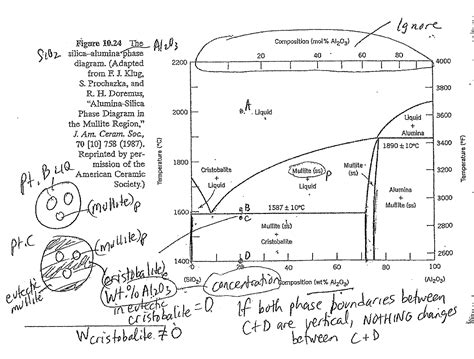 Ignore
Figure 10.24 The
silica-alumina phase
diagram. (Adapted
from F. J. Klug,
S. Prochazka, and
R. H. Doremus,
"Alumina-Silica
Phase Diagram in
the Mullite Region,"
J. Am. Ceram. Soc.,
70 [10] 758 (1987).
Reprinted by per-
mission of the
American Ceramic
Society.)
SiO2
Al2O3
Composition (mol% Al2O3)
0 20 40 60 80
2200
2000
1800
1600
1400
Temperature (°C)
4000
3800
3600
3400
3200
3000
2800
2600
Temperature (°F)
A
Liquid
Liquid
+
Alumina
1890 ± 10°C
Cristobalite
+
Liquid
Mullite (ss) p
+
Liquid
Mullite
(ss)
Alumina
+
Mullite (ss)
B
C
1587 ± 10°C
Mullite (ss)
+
Cristobalite
D
0 20 40 60 80 100
(SiO2)
Composition (wt% Al2O3)
(Al2O3)
pt. B LIQ
(mullite)p
pt. C
(mullite)p
eutectic
mullite
(cristobalite)
wt.% Al2O3
in eutectic
cristobalite = 0
concentration
W cristobalite ≠ 0
If both phase boundaries between
C+D are vertical, NOTHING changes
between C+D